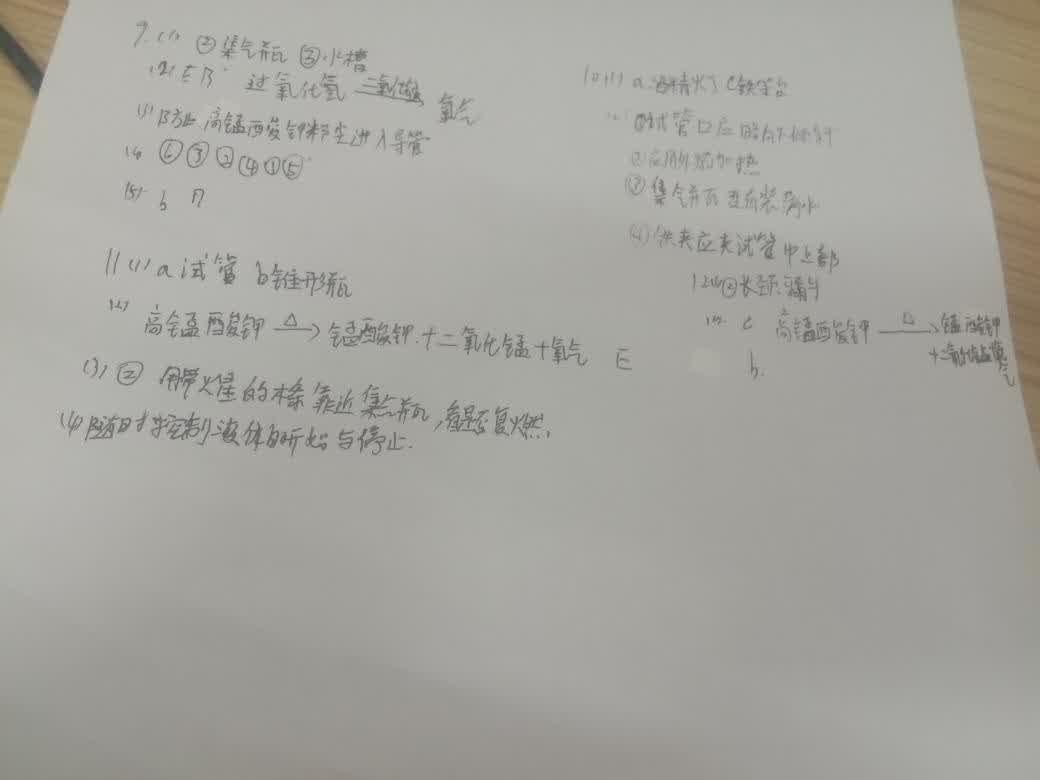 9.(1) ②集气瓶 ③水槽
(2) E B 过氧化氢 二氧化锰 氧气
(3) 防止高锰酸钾粉尘进入导管
(4) ⑥③②④①⑤
(5) b
11(1) a试管 b锥形瓶
(2) 高锰酸钾 △→ 锰酸钾+二氧化锰+氧气 E
(3) ② 用带火星的木条靠近集气瓶,看是否复燃
(4) 随时控制液体的开始与停止.
10(1) a酒精灯 c铁架台
①试管口应略向下倾斜
②应用外焰加热
③集气瓶应装满水
(4)铁夹应夹试管中上部
②长颈漏斗
c 高锰酸钾 △→ 锰酸钾
+二氧化锰氧气
b.